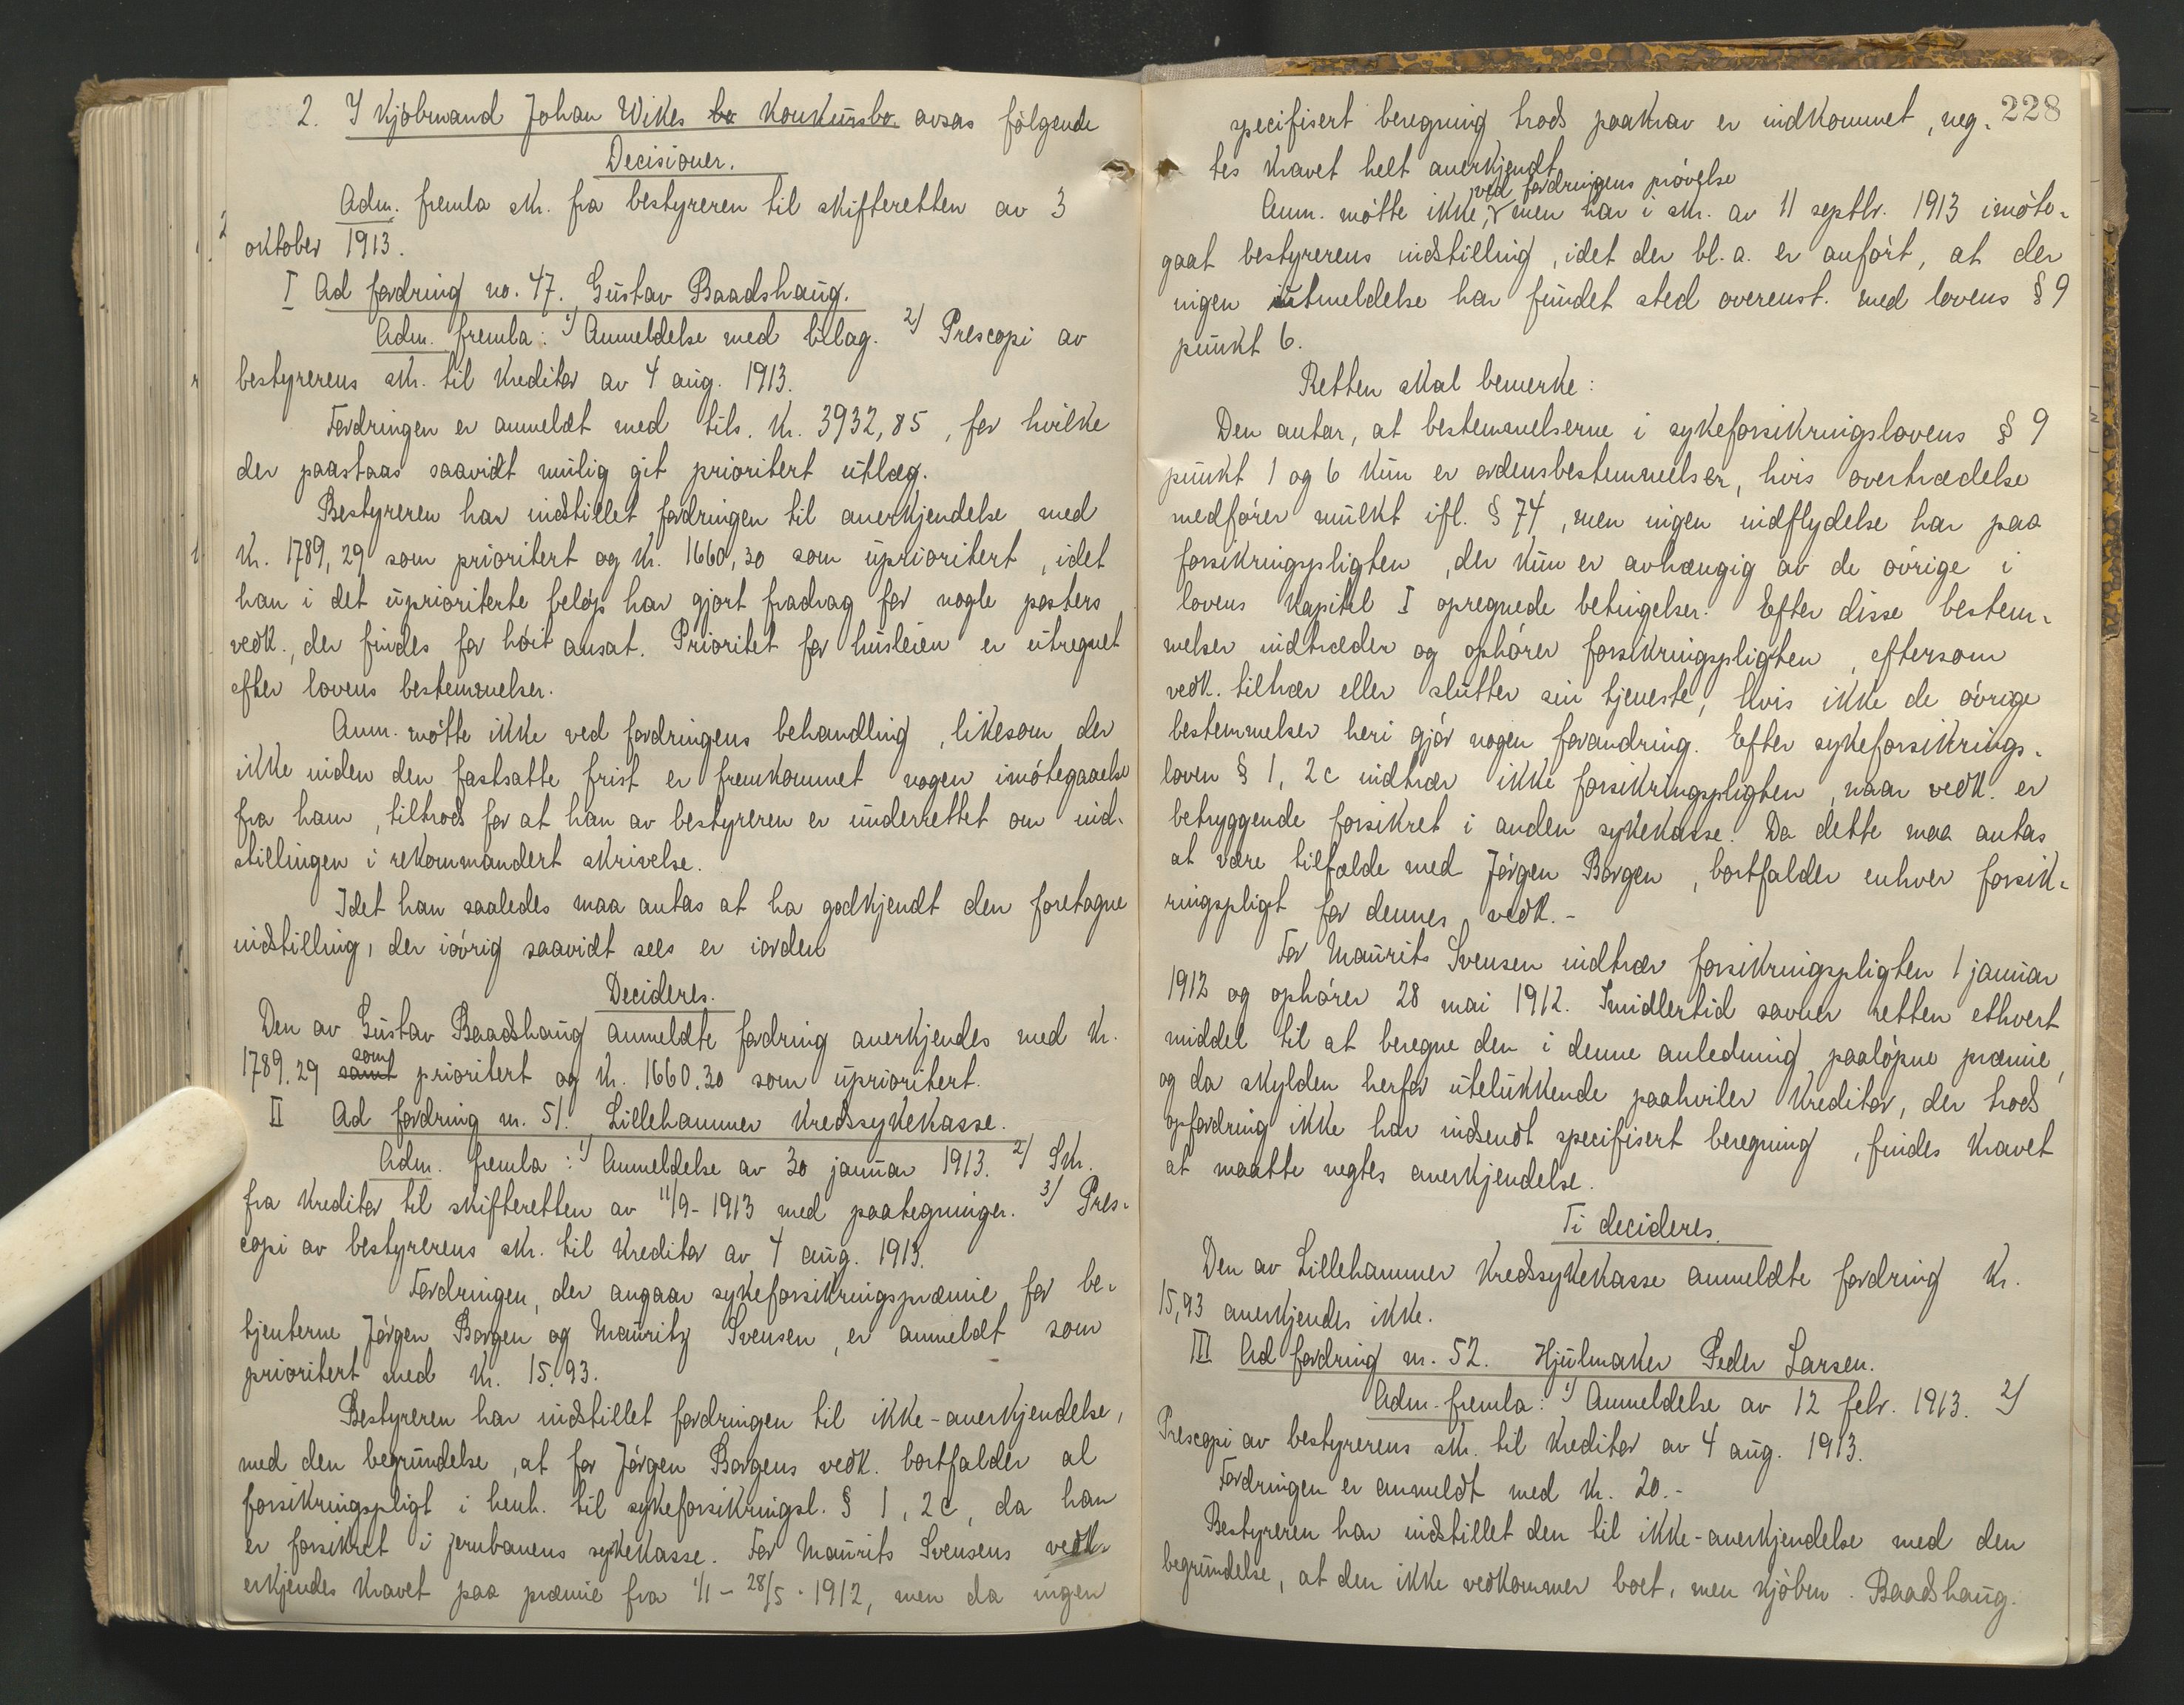 2. I kjøbmand Johan Wikes bo konkursbo avsas følgende
Decisioner.
Adm. fremla skr. fra bestyreren til skifteretten av 3
oktober 1913.
I Ad fordring no. 47. Gustav Baadshaug.
Adm. fremla: 1) Anmeldelse med bilag. 2) Prescopi av
bestyrerens skr. til kreditor av 4 aug. 1913.
Fordringen er anmeldt med tils. kr. 3932,85, for hvilke
der paastaas saavidt mulig git prioritert utlæg.
Bestyreren har indstillet fordringen til anerkjendelse med
kr. 1789,29 som prioritert og kr. 1660,30 som uprioritert, idet
han i det uprioriterte beløp har gjort fradrag for nogle posters
vedk., der findes for høit ansat. Prioritet for husleien er utregnet
efter lovens bestemmelser.
Anm. møtte ikke ved fordringens behandling, likesom der
ikke inden den fastsatte frist er fremkommet nogen imøtegaaelse
fra ham, tiltrods for at han av bestyreren er underrettet om ind-
stillingen i rekommandert skrivelse.
Idet han saaledes maa antas at ha godkjendt den foretagne
indstilling, der iøvrig saavidt sees er iorden
Decideres.
Den av Gustav Baadshaug anmeldte fordring anerkjendes med kr.
1789.29 samt som prioritert og kr. 1660.30 som uprioritert.
II Ad fordring nr. 51. Lillehammer kredssykekasse.
Adm. fremla: 1) Anmeldelse av 30 januar 1913. 2) Skr.
fra kreditor til skifteretten av 11/9-1913 med paategninger. 3) Pres-
copi av bestyrerens skr. til kreditor av 4 aug. 1913.
Fordringen, der angaar sykeforsikringspræmie for be-
tjenterne Jørgen Borgen og Mauritz Svensen, er anmeldt som
prioritert med kr. 15.93.
Bestyreren har indstillet fordringen til ikke-anerkjendelse,
med den begrundelse, at for Jørgen Borgens vedk. bortfalder al
forsikringspligt i henh. til sykeforsikringsl. § 1, 2c, da han
er forsikret i jernbanens sykekasse. For Maurits Svensens vedk.
erkjendes kravet paa præmie fra 1/1 - 28/5 - 1912, men da ingen
228
specifisert beregning trods paakrav er indkommet, neg-
tes kravet helt anerkjendt.
Anm. møtte ikke ved fordringens prøvelse, men har i skr. av 11 septbr. 1913 imøte-
gaat bestyrerens indstilling, idet der bl. a. er anført, at der
ingen utmeldelse har fundet sted overenst. med lovens § 9
punkt 6.
Retten skal bemerke:
Den antar, at bestemmelserne i sykeforsikringslovens § 9
punkt 1 og 6 kun er ordensbestemmelser, hvis overtrædelse
medfører mulkt ifl. § 74, men ingen indflydelse har paa
forsikringspligten, der kun er avhængig av de øvrige i
lovens kapitel I opregnede betingelser. Efter disse bestem-
melser indtræder og ophører forsikringspligten, eftersom
vedk. tiltrær eller slutter sin tjeneste, hvis ikke de øvrige
bestemmelser heri gjør nogen forandring. Efter sykeforsikrings-
loven § 1, 2c indtrær ikke forsikringspligten, naar vedk. er
betryggende forsikret i anden sykekasse. Da dette maa antas
at være tilfælde med Jørgen Borgen, bortfalder enhver forsik-
ringspligt for dennes vedk. -
For Maurits Svensen indtrær forsikringspligten 1 januar
1912 og ophører 28 mai 1912. Imidlertid savner retten ethvert
middel til at beregne den i denne anledning paaløpne præmie,
og da skylden herfor utelukkende paahviler kreditor, der trods
opfordring ikke har indsendt specifisert beregning, findes kravet
at maatte negtes anerkjendelse.
Ti decideres.
Den av Lillehammer kredssykekasse anmeldte fordring kr.
15,93 anerkjendes ikke.
III Ad fordring nr. 52. Hjulmaker Peder Larsen.
Adm. fremla: 1) Anmeldelse av 12 febr. 1913. 2)
Prescopi av bestyrerens skr. til kreditor av 4 aug. 1913.
Fordringen er anmeldt med kr. 20.-
Bestyreren har indstillet den til ikke-anerkjendelse med den
begrundelse, at den ikke vedkommer boet, men kjøbm. Baadshaug.